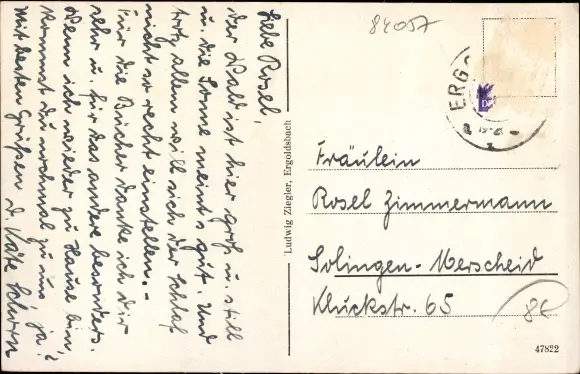 Liebe Rosel,
der Wald ist hier groß u. still
u. die Sonne meint's gut. Und
trotz allem will sich der Schlaf
nicht so recht einstellen. -
Für die Bücher danke ich Dir
sehr u. für das andere besonders.
Wenn ich wieder zu Hause bin,
kommst du nochmal zu uns, ja?
Mit besten Grüßen D. Käte
84057
ERG
Fräulein
Rosel Zimmermann
Solingen-Merscheid
Kluckstr. 65
8€
Ludwig Ziegler, Ergoldsbach
47822